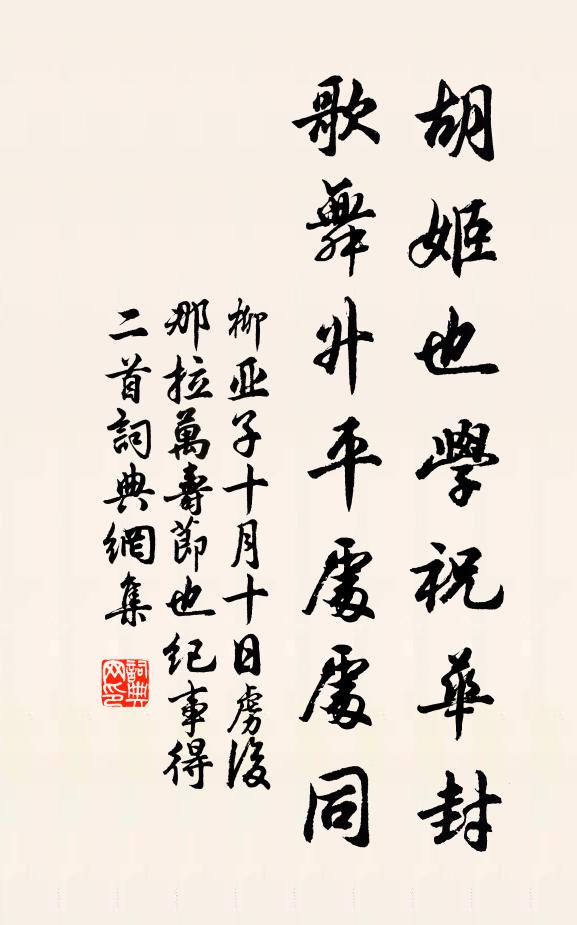 胡姬也學祝華封
歌舞升平處處同
柳亚子十月十日虜後
那拉萬壽節也纪事得
二首詞典網集
詞典
网印